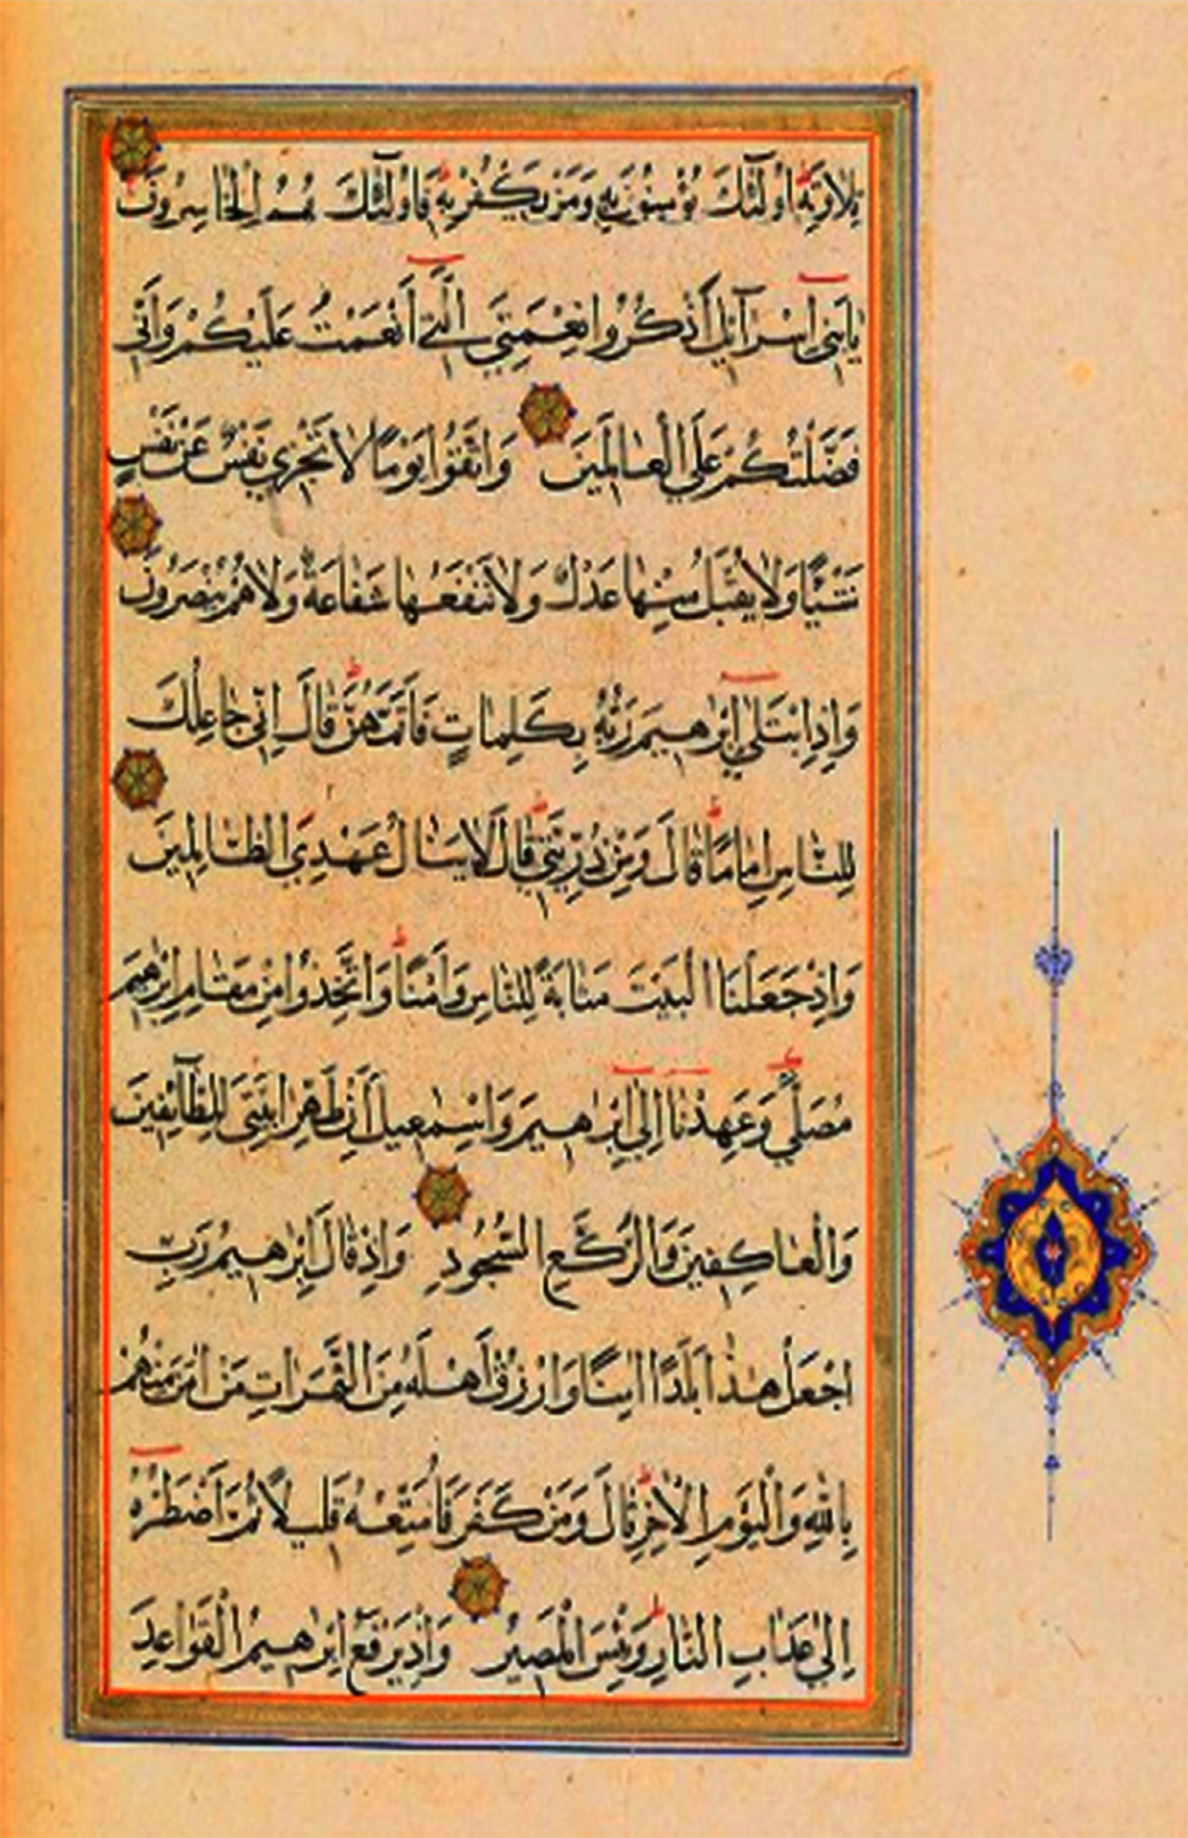 تِلَاوَتِهِ أُولَٰئِكَ يُؤْمِنُونَ بِهِ وَمَنْ يَكْفُرْ بِهِ فَأُولَٰئِكَ هُمُ الْخَاسِرُونَ
يَابَنِي إِسْرَآئِلَ اذْكُرُوا نِعْمَتِيَ الَّتِي أَنْعَمْتُ عَلَيْكُمْ وَأَنِّي
فَضَّلْتُكُمْ عَلَى الْعَالَمِينَ وَاتَّقُوا يَوْمًا لَا تَجْزِي نَفْسٌ عَنْ نَفْسٍ
شَيْئًا وَلَا يُقْبَلُ مِنْهَا عَدْلٌ وَلَا تَنْفَعُهَا شَفَاعَةٌ وَلَا هُمْ يُنْصَرُونَ
وَإِذِ ابْتَلَىٰ إِبْرٰهِيمَ رَبُّهُ بِكَلِمَاتٍ فَأَتَمَّهُنَّ قَالَ إِنِّي جَاعِلُكَ
لِلنَّاسِ إِمَامًا قَالَ وَمِنْ ذُرِّيَّتِي قَالَ لَا يَنَالُ عَهْدِي الظَّالِمِينَ
وَإِذْ جَعَلْنَا الْبَيْتَ مَثَابَةً لِلنَّاسِ وَأَمْنًا وَاتَّخِذُوا مِنْ مَقَامِ إِبْرٰهِيمَ
مُصَلًّى وَعَهِدْنَا إِلَىٰ إِبْرٰهِيمَ وَإِسْمٰعِيلَ أَنْ طَهِّرَا بَيْتِيَ لِلطَّآئِفِينَ
وَالْعَاكِفِينَ وَالرُّكَّعِ السُّجُودِ وَإِذْ قَالَ إِبْرٰهِيمُ رَبِّ
اجْعَلْ هٰذَا بَلَدًا اٰمِنًا وَارْزُقْ أَهْلَهُ مِنَ الثَّمَرَاتِ مَنْ اٰمَنَ مِنْهُمْ
بِاللّٰهِ وَالْيَوْمِ الْاٰخِرِ قَالَ وَمَنْ كَفَرَ فَأُمَتِّعُهُ قَلِيلًا ثُمَّ أَضْطَرُّهُ
إِلَىٰ عَذَابِ النَّارِ وَبِئْسَ الْمَصِيرُ وَإِذْ يَرْفَعُ إِبْرٰهِيمُ الْقَوَاعِدَ